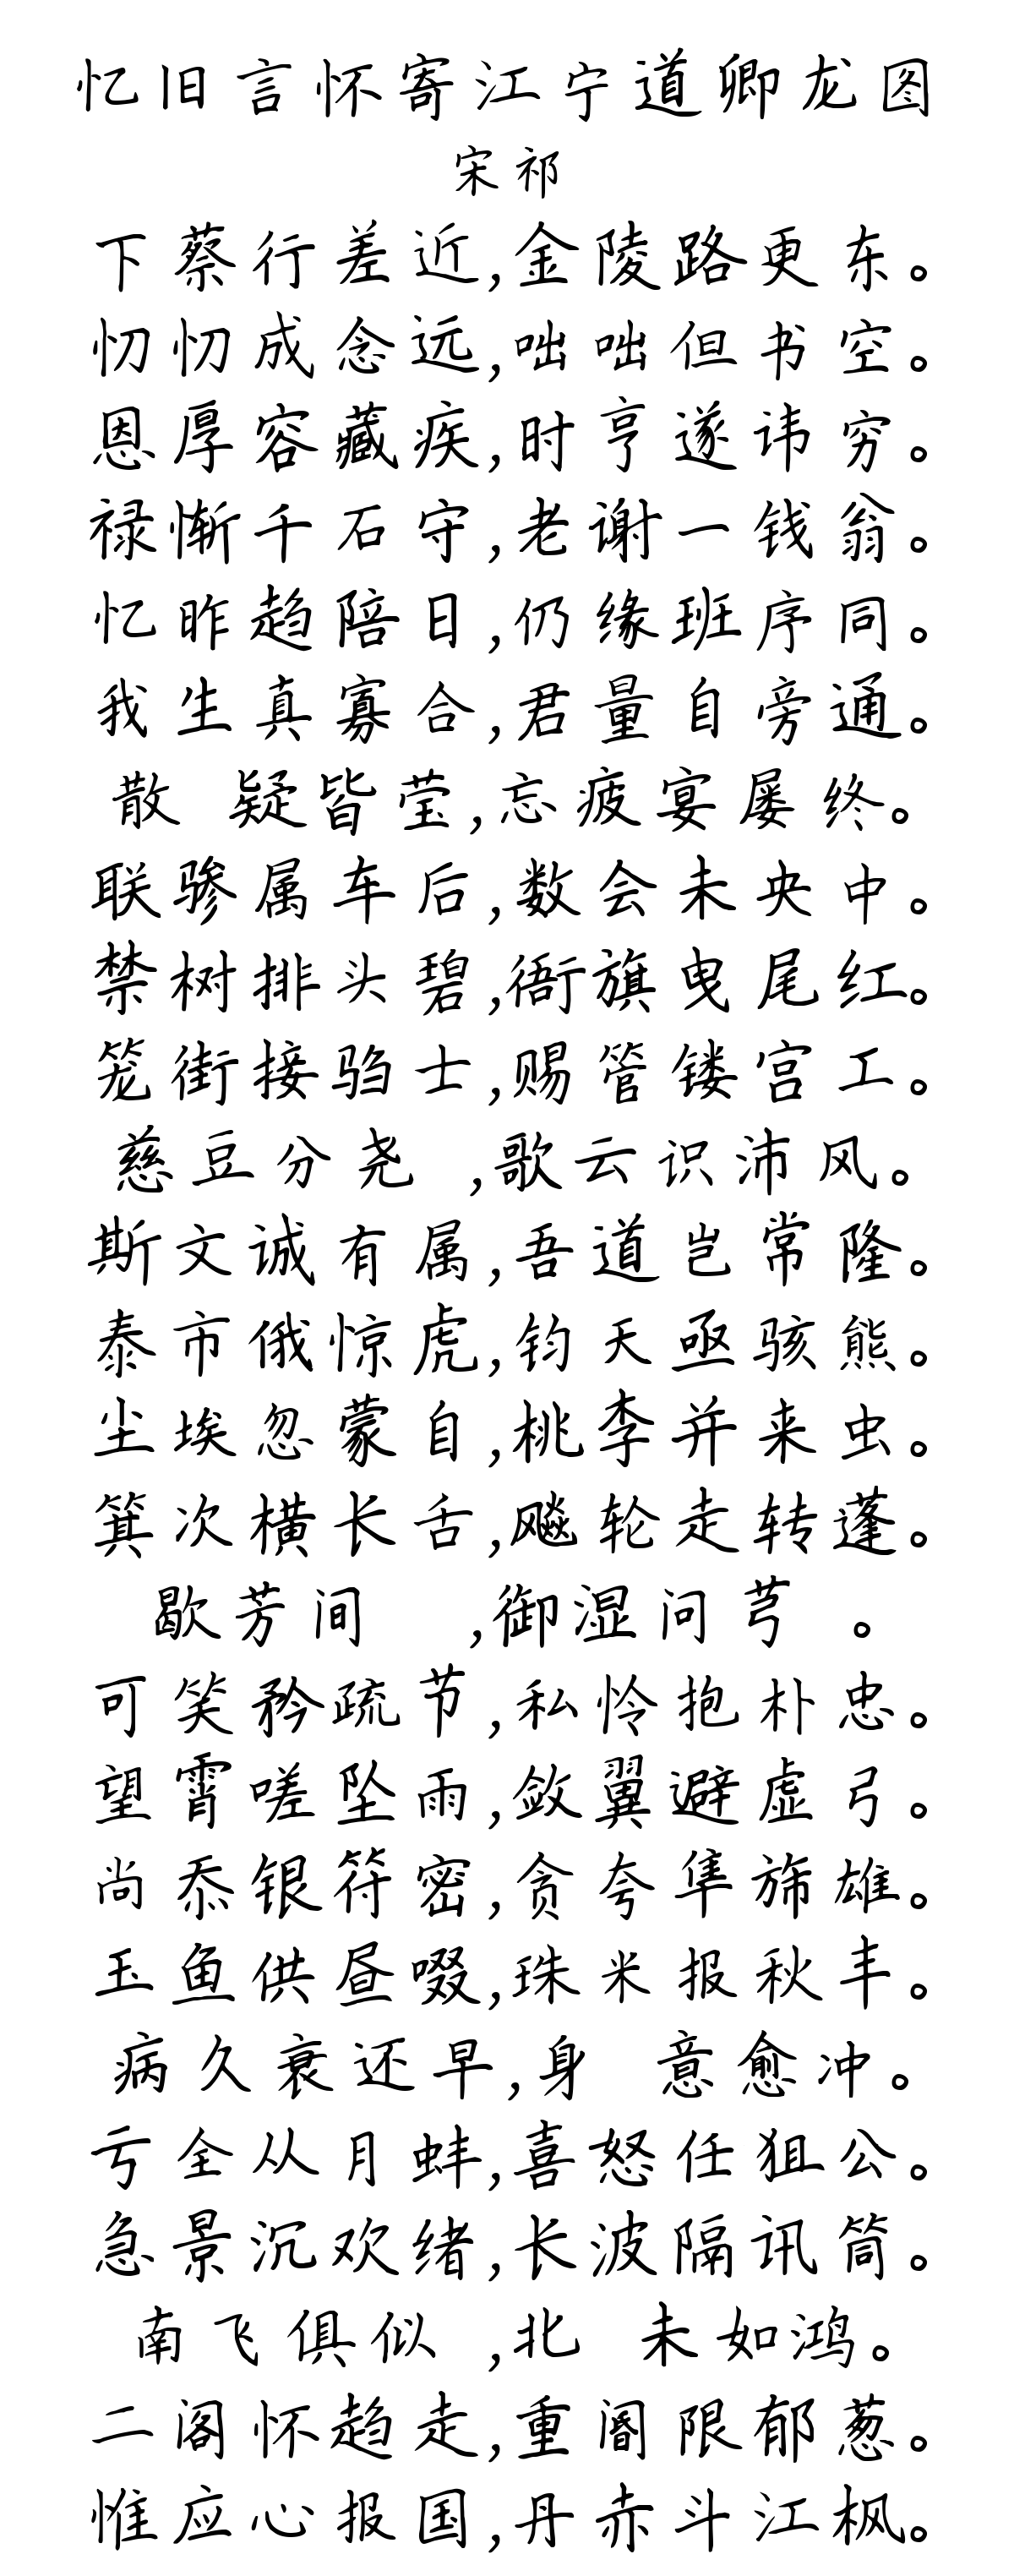 忆旧言怀寄江宁道卿龙图
宋祁
下蔡行差近,金陵路更东。
忉忉成念远,咄咄但书空。
恩厚容藏疾,时亨遂讳穷。
禄惭千石守,老谢一钱翁。
忆昨趋陪日,仍缘班序同。
我生真寡合,君量自旁通。
散 疑皆莹,忘疲宴屡终。
联骖属车后,数会未央中。
禁树排头碧,衙旗曳尾红。
笼街接驺士,赐管镂宫工。
慈豆分尧 ,歌云识沛风。
斯文诚有属,吾道岂常隆。
泰市俄惊虎,钧天亟骇熊。
尘埃忽蒙自,桃李并来虫。
箕次横长舌,飚轮走转蓬。
歇芳间 ,御湿问芎 。
可笑矜疏节,私怜抱朴忠。
望霄嗟坠雨,敛翼避虚弓。
尚忝银符密,贪夸隼旆雄。
玉鱼供昼啜,珠米报秋丰。
病久衰还早,身 意愈冲。
亏全从月蚌,喜怒任狙公。
急景沉欢绪,长波隔讯筒。
南飞俱似 ,北 未如鸿。
二阁怀趋走,重阍限郁葱。
惟应心报国,丹赤斗江枫。